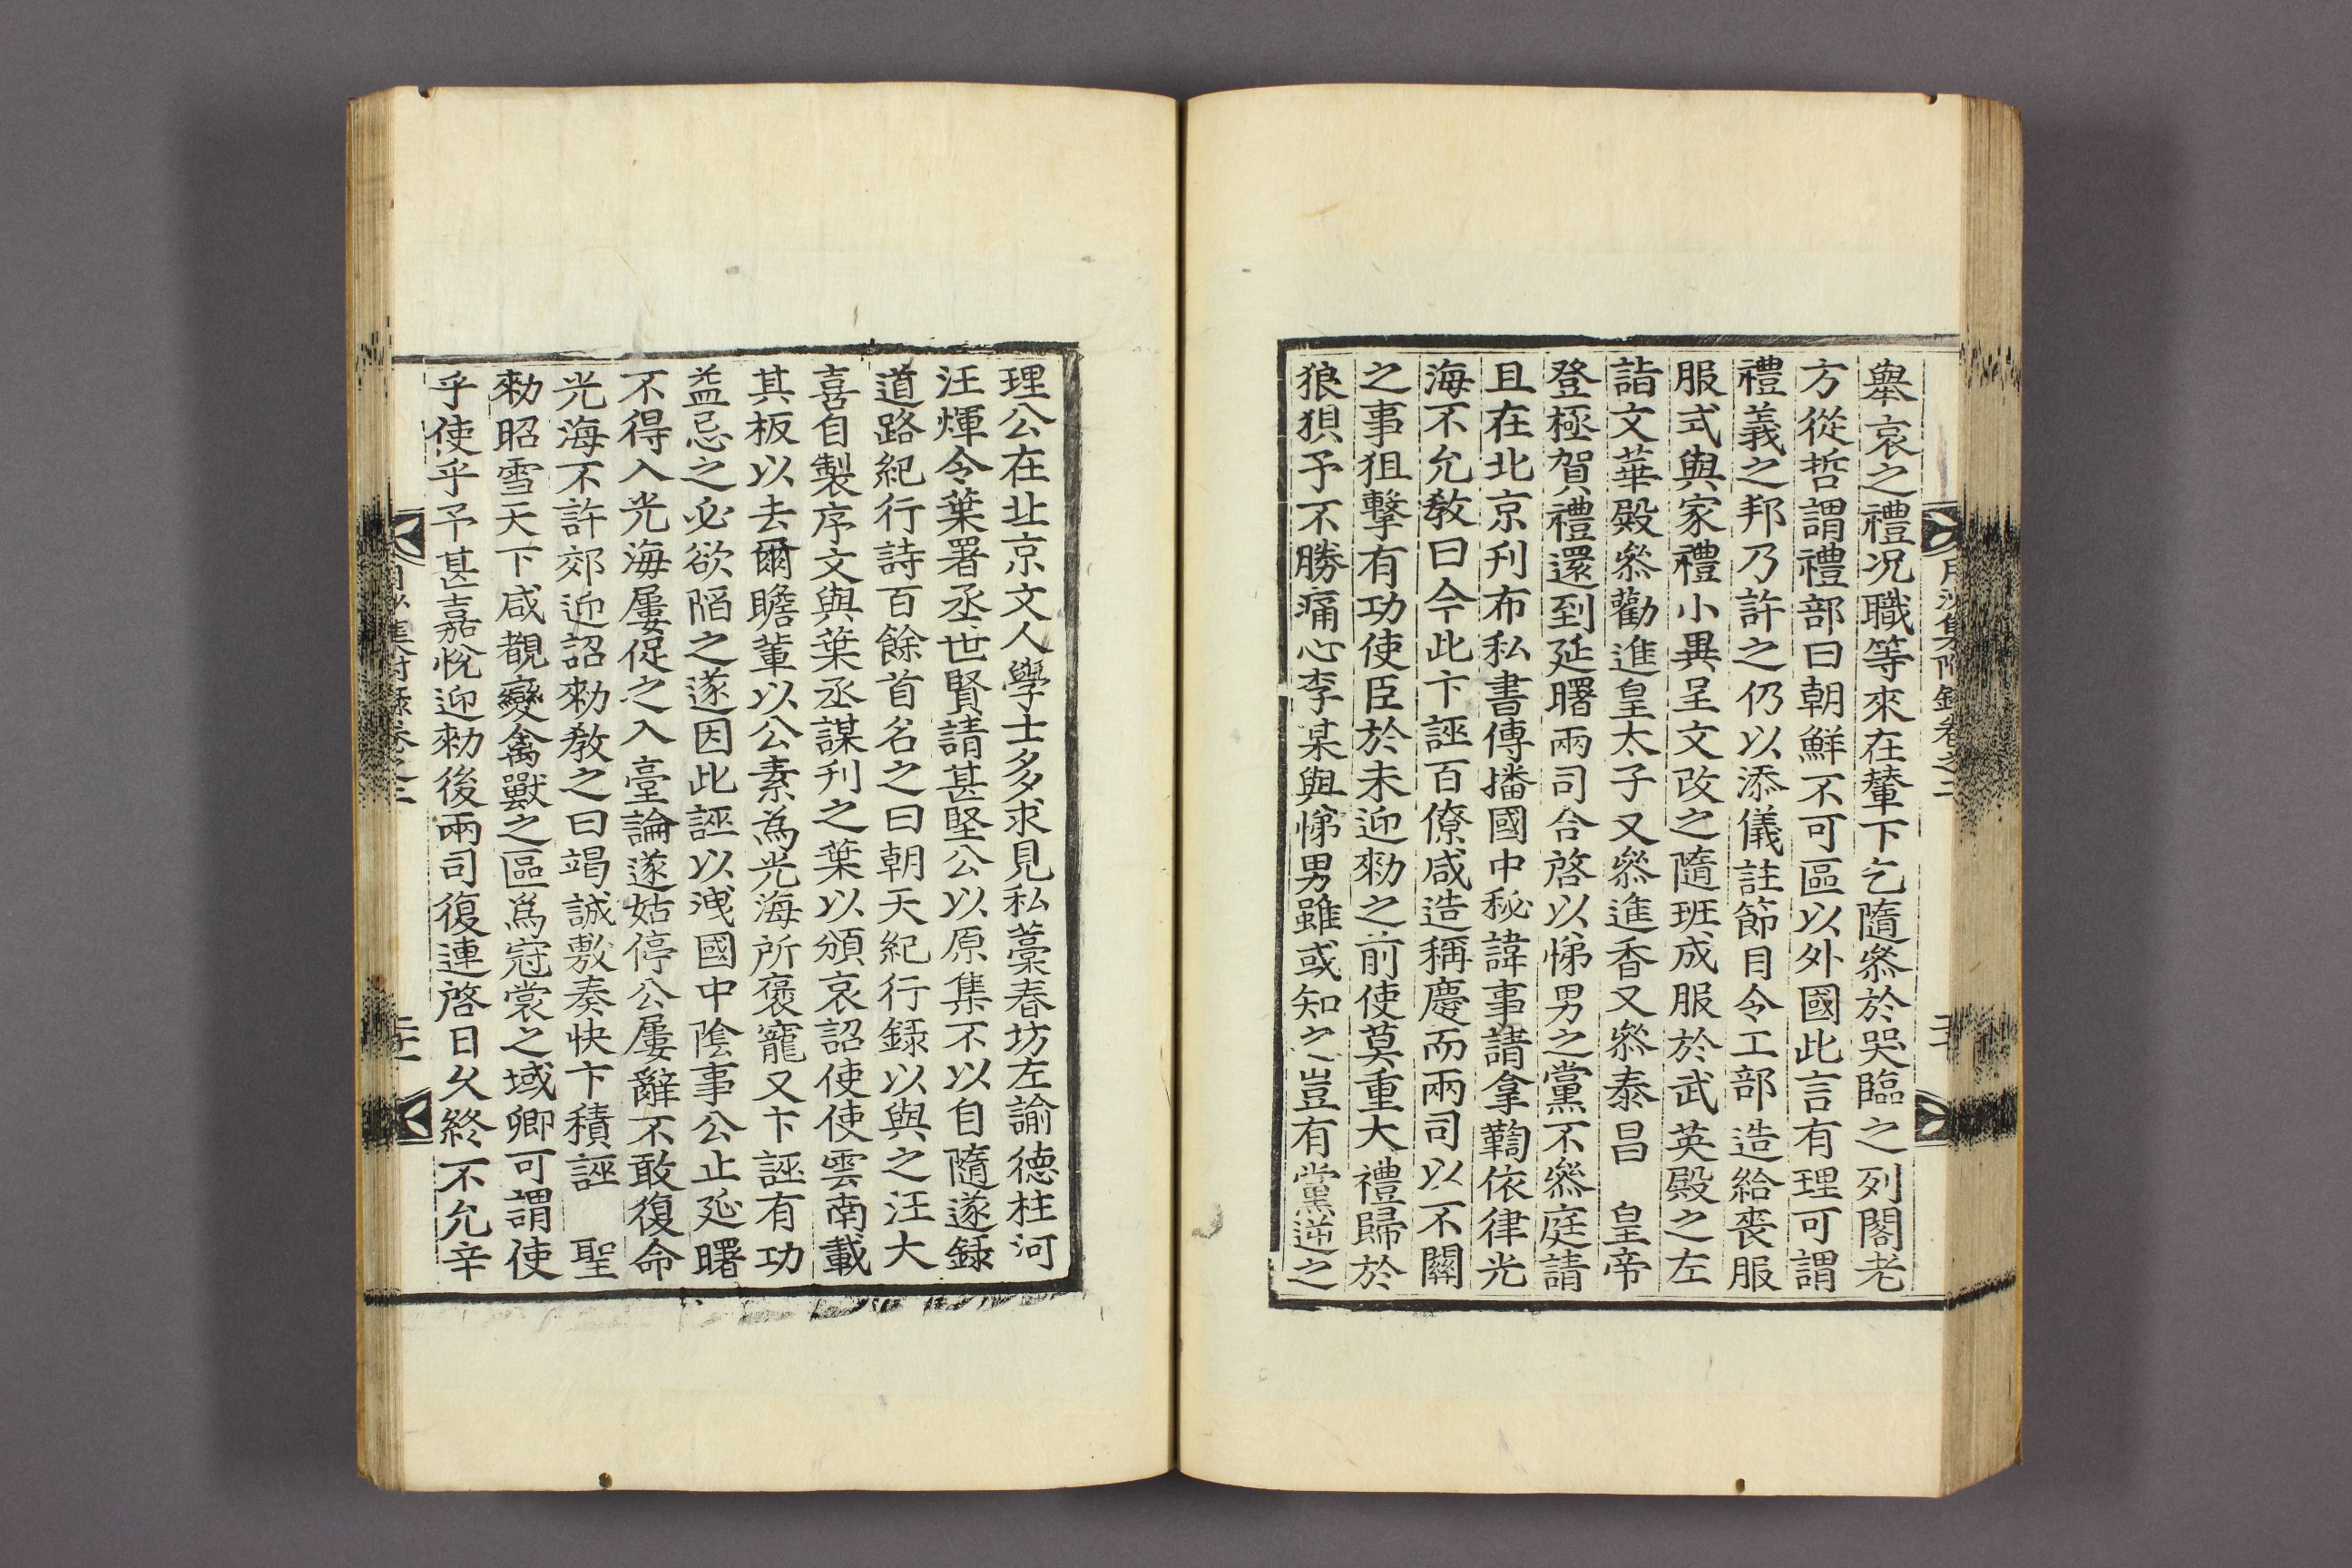 月沙集附錄卷之二
擧哀之禮况職等來在輦下乞隨叅於哭臨之列閣老
方從哲謂禮部曰朝鮮不可區以外國此言有理可謂
禮義之邦乃許之仍以添儀註節目令工部造給喪服
服式與家禮小異呈文改之隨班成服於武英殿之左
詣文華殿叅勸進皇太子又叅進香又叅泰昌 皇帝
登極賀禮還到延曙兩司合啓以悌男之黨不叅庭請
且在北京刋布私書傳播國中秘諱事請拿鞫依律光
海不允敎曰今此卞誣百僚咸造稱慶而兩司以不關
之事狙擊有功使臣於未迎勑之前使莫重大禮歸於
狼狽予不勝痛心李某與悌男雖或知之豈有黨逆之
理公在北京文人學士多求見私藁春坊左諭德柱河
汪煇令葉署丞世賢請甚堅公以原集不以自隨遂錄
道路紀行詩百餘首名之曰朝天紀行錄以與之汪大
喜自製序文與葉丞謀刋之葉以頒哀詔使使雲南載
其板以去爾瞻輩以公素爲光海所褒寵又卞誣有功
益忌之必欲陷之遂因此誣以洩國中陰事公止延曙
不得入光海屢促之入臺論遂姑停公屢辭不敢復命
光海不許郊迎詔勑敎之曰竭誠敷奏快卞積誣 聖
勑昭雪天下咸覩變禽獸之區爲冠裳之域卿可謂使
乎使乎予甚嘉悅迎勑後兩司復連啓日久終不允辛